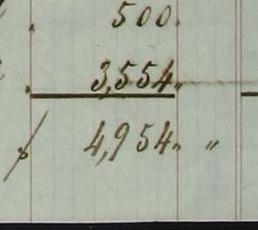 500.
3,554.
$ 4,954. "